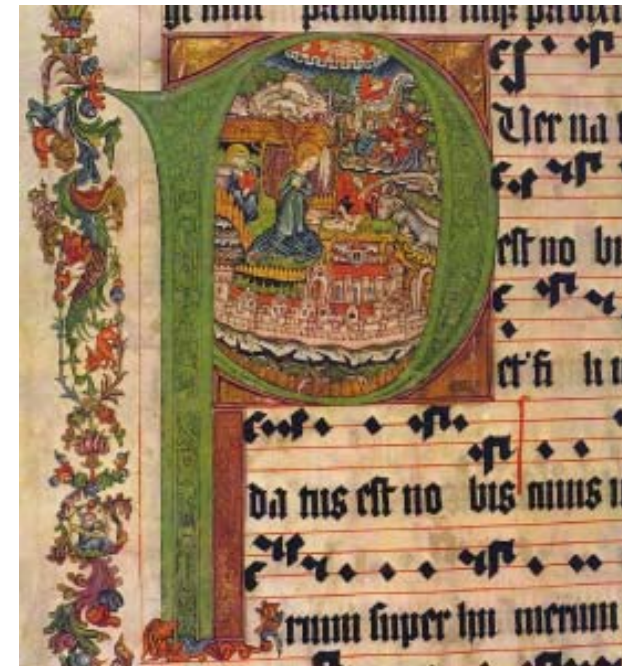 P
Uer na
est no bi
et fi li
da tus est no bis cuius
rum super hu merum